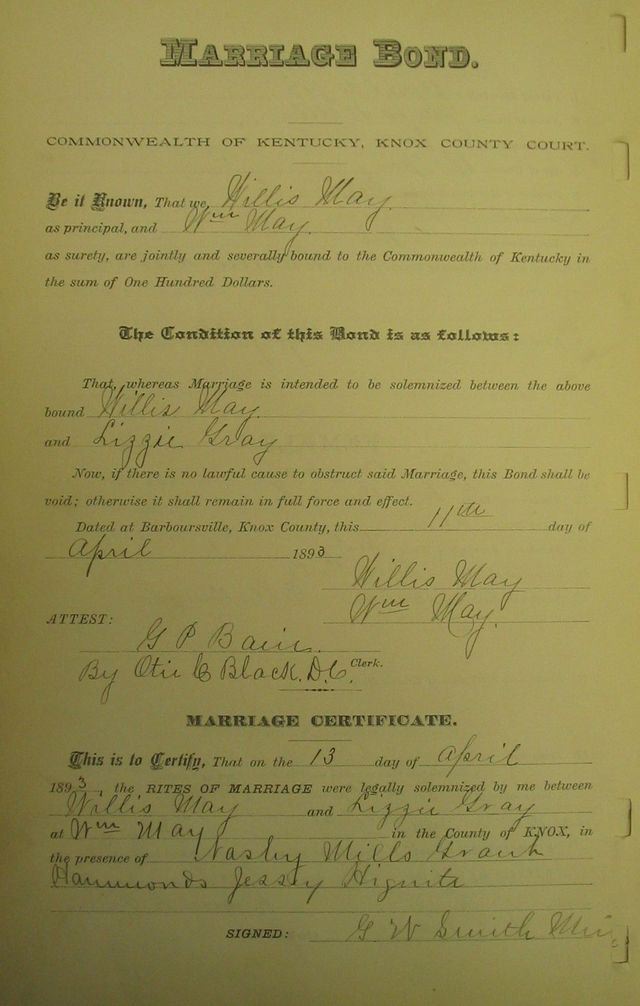 MARRIAGE BOND.
COMMONWEALTH OF KENTUCKY, KNOX COUNTY COURT.
Be it Known, That we Willis May
as principal, and Wm May.
as surety, are jointly and severally bound to the Commonwealth of Kentucky in
the sum of One Hundred Dollars.
The Condition of this Bond is as follows:
That, whereas Marriage is intended to be solemnized between the above
bound Willis May.
and Lizzie Gray
Now, if there is no lawful cause to obstruct said Marriage, this Bond shall be
void; otherwise it shall remain in full force and effect.
Dated at Barboursville, Knox County, this 11th day of
April 1893
Willis May
Wm May.
ATTEST:
G P Bain.
By Otis C Black. D.C. Clerk.
MARRIAGE CERTIFICATE.
This is to Certify, That on the 13 day of April
1893, the RITES OF MARRIAGE were legally solemnized by me between
Willis May and Lizzie Gray
at Wm May in the County of KNOX, in
the presence of Nasby Mills Grant
Hammonds Jessy Hignite
SIGNED: G W Smith Min